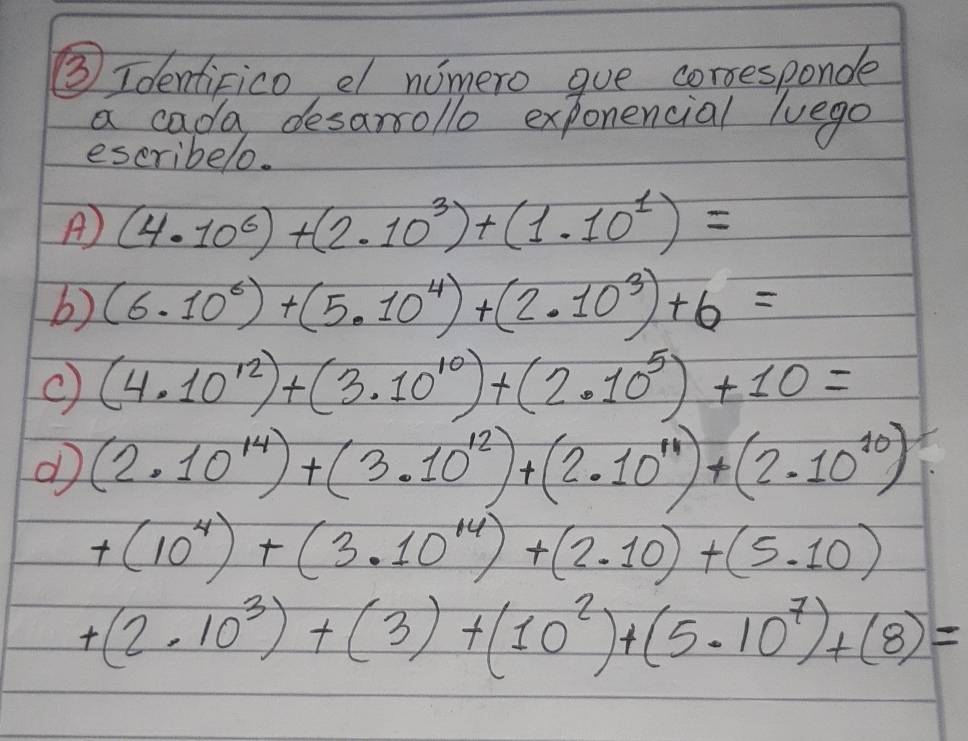 ③ Identifico el número que corresponde
a cada desarrollo exponencial luego
escribelo.
A) (4.10⁶) + (2.10³) + (1.10¹) =
b) (6.10⁶) + (5.10⁴) + (2.10³) + 6 =
c) (4.10¹²) + (3.10¹⁰) + (2.10⁵) + 10 =
d) (2.10¹⁴) + (3.10¹²) + (2.10¹¹) + (2.10¹⁰)
+ (10⁴) + (3.10¹⁴) + (2.10) + (5.10)
+ (2.10³) + (3) + (10²) + (5.10⁷) + (8) =